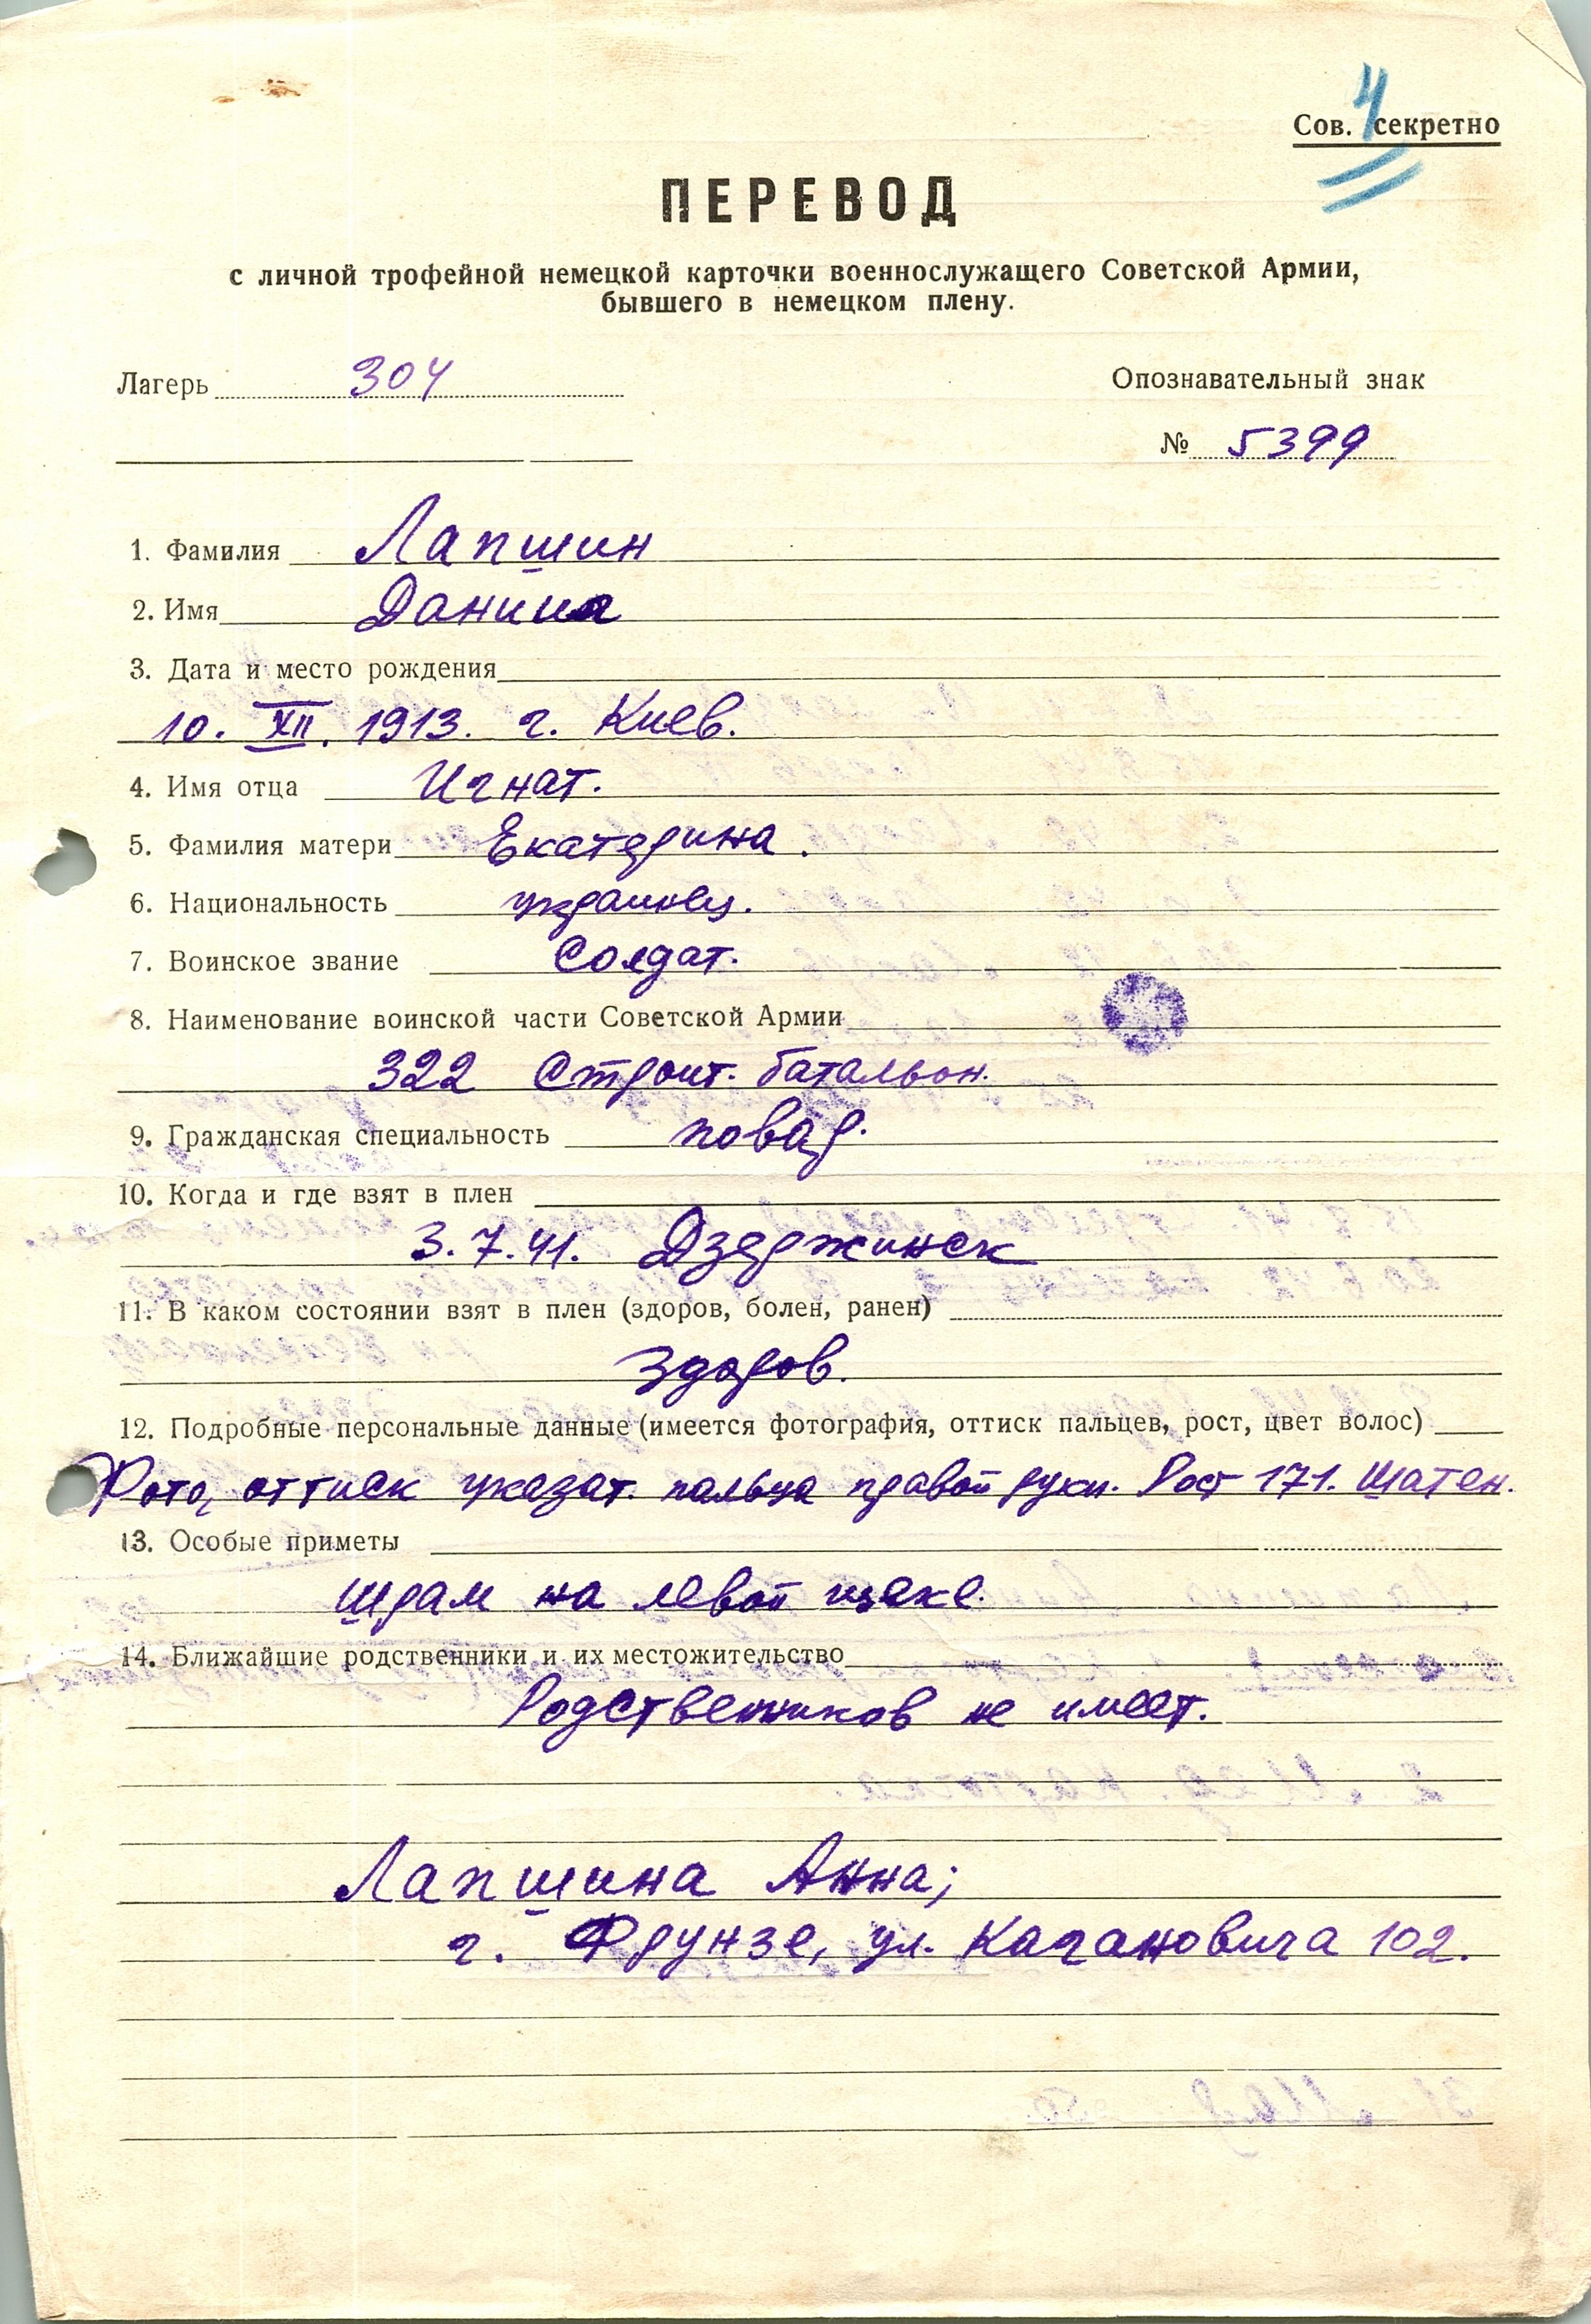 4
Сов. секретно
ПЕРЕВОД
с личной трофейной немецкой карточки военнослужащего Советской Армии,
бывшего в немецком плену.
Лагерь 304 Опознавательный знак
№ 5399
1. Фамилия Лапшин
2. Имя Данила
3. Дата и место рождения
10. XII. 1913. г. Киев.
4. Имя отца Игнат.
5. Фамилия матери Екатерина.
6. Национальность украинец.
7. Воинское звание Солдат.
8. Наименование воинской части Советской Армии
322 Строит. батальон.
9. Гражданская специальность повар.
10. Когда и где взят в плен
3.7.41. Дзержинск
11. В каком состоянии взят в плен (здоров, болен, ранен)
здоров.
12. Подробные персональные данные (имеется фотография, оттиск пальцев, рост, цвет волос)
Фото, оттиск указат. пальца правой руки. Рост 171. Шатен.
13. Особые приметы
Шрам на левой щеке.
14. Ближайшие родственники и их местожительство
Родственников не имеет.
Лапшина Анна;
г. Фрунзе, ул. Кагановича 102.